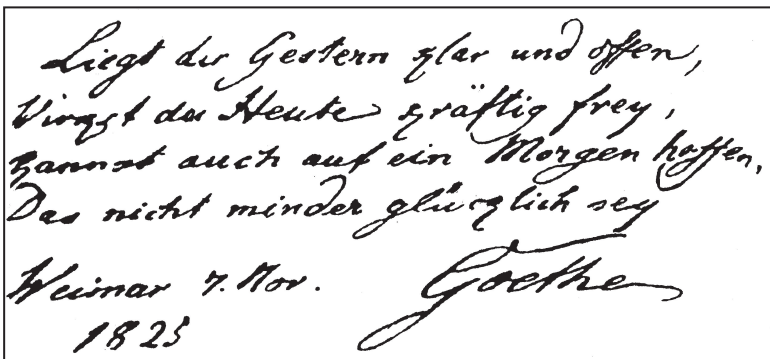 Liegt dir Gestern klar und offen,
Wirkst du Heute kräftig frey,
Kannst auch auf ein Morgen hoffen,
Das nicht minder glücklich sey
Weimar 7. Nov. Goethe
1825